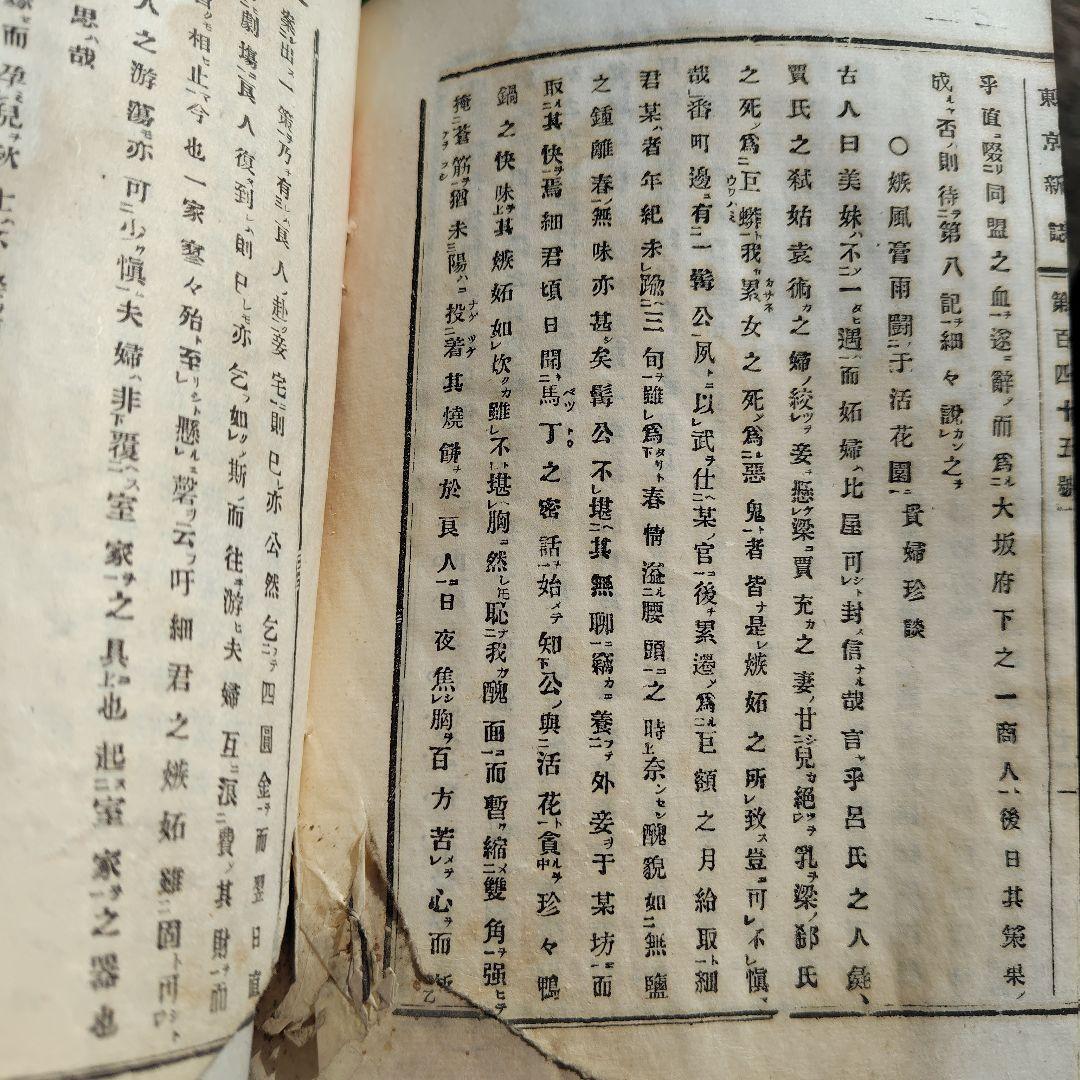 東京新誌 第百四十五號 一
乎直ニ啜リ同盟之血ヲ遂ニ辭シ而爲ル大坂府下之一商人ト後日其策果ノ
成ルヤ否ノ則待ヲ第八記ヲ細々說カン之ヲ
〇嫉風膏雨鬪于活花園ニ貴婦珍談
古人曰美妹ハ不一タヒ遇ハ而妬婦ハ比屋可シト封信ナル哉言ヤ乎呂氏之人彘、
賈氏之弒姑袁術カ之婦ノ絞ツヲ妾懸ク梁ニ賈充カ之妻ノ甘シ兒カ絕ツヲ乳ヲ梁ノ郗氏
之死シ爲ニ巨蟒ト我カ累女之死シ爲ル惡鬼ト者皆ナ是レ嫉妬之所致ス豈可不愼、
哉番町邊有一髯公夙トニ以武ヲ仕ヘ某ノ官ニ後チ累遷メ爲ル巨額之月給取ト細
君某ハ者年紀未踰三旬ヲ雖爲タリト春情溢ル腰頭ニ之時ト奈ンセン醜貌如無鹽
之鍾離春ノ無味亦甚シ矣髯公不堪ヘ其無聊ニ竊カニ養フテ外妾ヲ于某坊ニ而
取ル其快ヲ焉細君頃日聞馬丁之密話ヲ始メテ知公ノ與活花ト貪ルヲ珍々鴨
鍋之快味ヲ其嫉妬如炊クカ雖不ト堪ヘ胸ニ然レモ恥ナ我カ醜面ニ而暫ク縮メ雙角ヲ强ヒテ
掩蒼筋ヲ猶未陽ハニ投着其燒餅ヲ於良人ニ日夜焦シ胸ヲ百方苦メテ心ヲ而
案出一策ヲ乃有良人赴ク妾宅ニ則已亦公然乞フテ四圓金ヲ而翌日直
劇塲ニ良人復到レ則已レモ亦乞フ如斯ノ而往ヒ游ヒ夫婦互ニ浪費シ其財ヲ而
相止今也一家寥々殆ト至リシト懸ルニ磬ヲ云フ吁細君之嫉妬雖固ト可シト
人之游蕩モ亦可少ク愼ム夫婦ハ非覆ヘス室家ヲ之具ニ也起ス室家ヲ之器也
思ハ哉